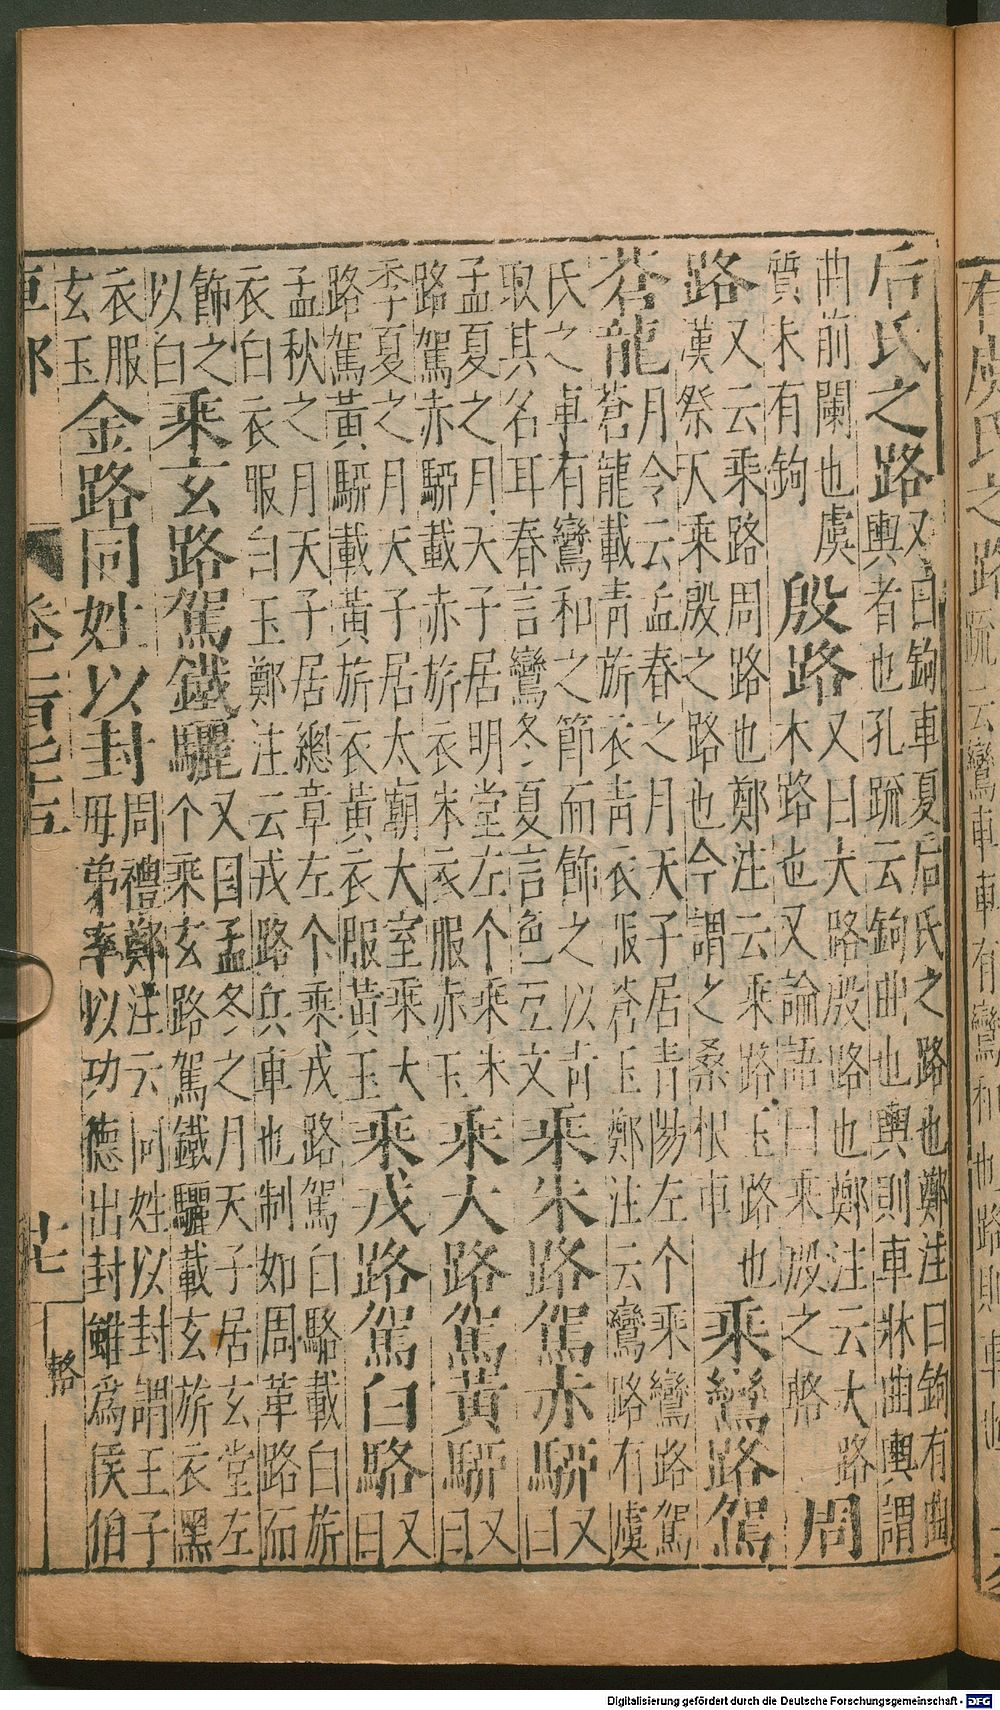 后氏之路又曰鉤車夏后氏之路也鄭注曰鉤有曲輿者也孔疏云鉤曲也輿則車牀曲輿謂
曲前闌也虞質未有鉤殷路又曰大路殷路也鄭注云大路木路也又論語曰乘殷之輅周
路又云乘路周路也鄭注云乘路玉路也漢祭天乘殷之路也今謂之桑根車乘鸞路駕
蒼龍月令云孟春之月天子居青陽左个乘鸞路駕蒼龍載青旂衣青衣服蒼玉鄭注云鸞路有虞
氏之車有鸞和之節而飾之以青取其名耳春言鸞冬夏言色互文乘朱路駕赤騂又曰
孟夏之月天子居明堂左个乘朱路駕赤騂載赤旂衣朱衣服赤玉乘大路駕黃騂又曰
季夏之月天子居太廟大室乘大路駕黃騂載黃旂衣黃衣服黃玉乘戎路駕白駱又曰
孟秋之月天子居總章左个乘戎路駕白駱載白旂衣白衣服白玉鄭注云戎路兵車也制如周革路而
飾之以白乘玄路駕鐵驪又曰孟冬之月天子居玄堂左个乘玄路駕鐵驪載玄旂衣黑
衣服玄玉金路同姓以封周禮鄭注云同姓以封謂王子母弟率以功德出封雖爲侯伯
車部
輅
Digitalisierung gefördert durch die Deutsche Forschungsgemeinschaft - DFG